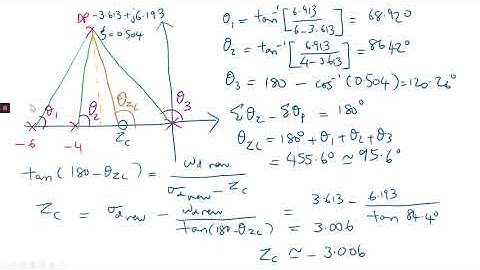 DP -3.613+j6.193
ξ=0.504
θ1 = tan⁻¹[6.193/6-3.613] = 68.92°
θ2 = tan⁻¹[6.193/4-3.613] = 86.42°
θ3 = 180 - cos⁻¹(0.504)=120.26°
Σθz - Σθp = 180°
θzc = 180°+θ1+θ2+θ3
= 455.6° ≃ 95.6°
θ1 θ2 θzc θ3
-6 -4 Zc
tan(180-θzc) = ωd new/σd new - Zc
Zc = σd new - ωd new/tan(180-θzc) = 3.613 - 6.193/tan 84.4°
= 3.006
Zc ≃ -3.006